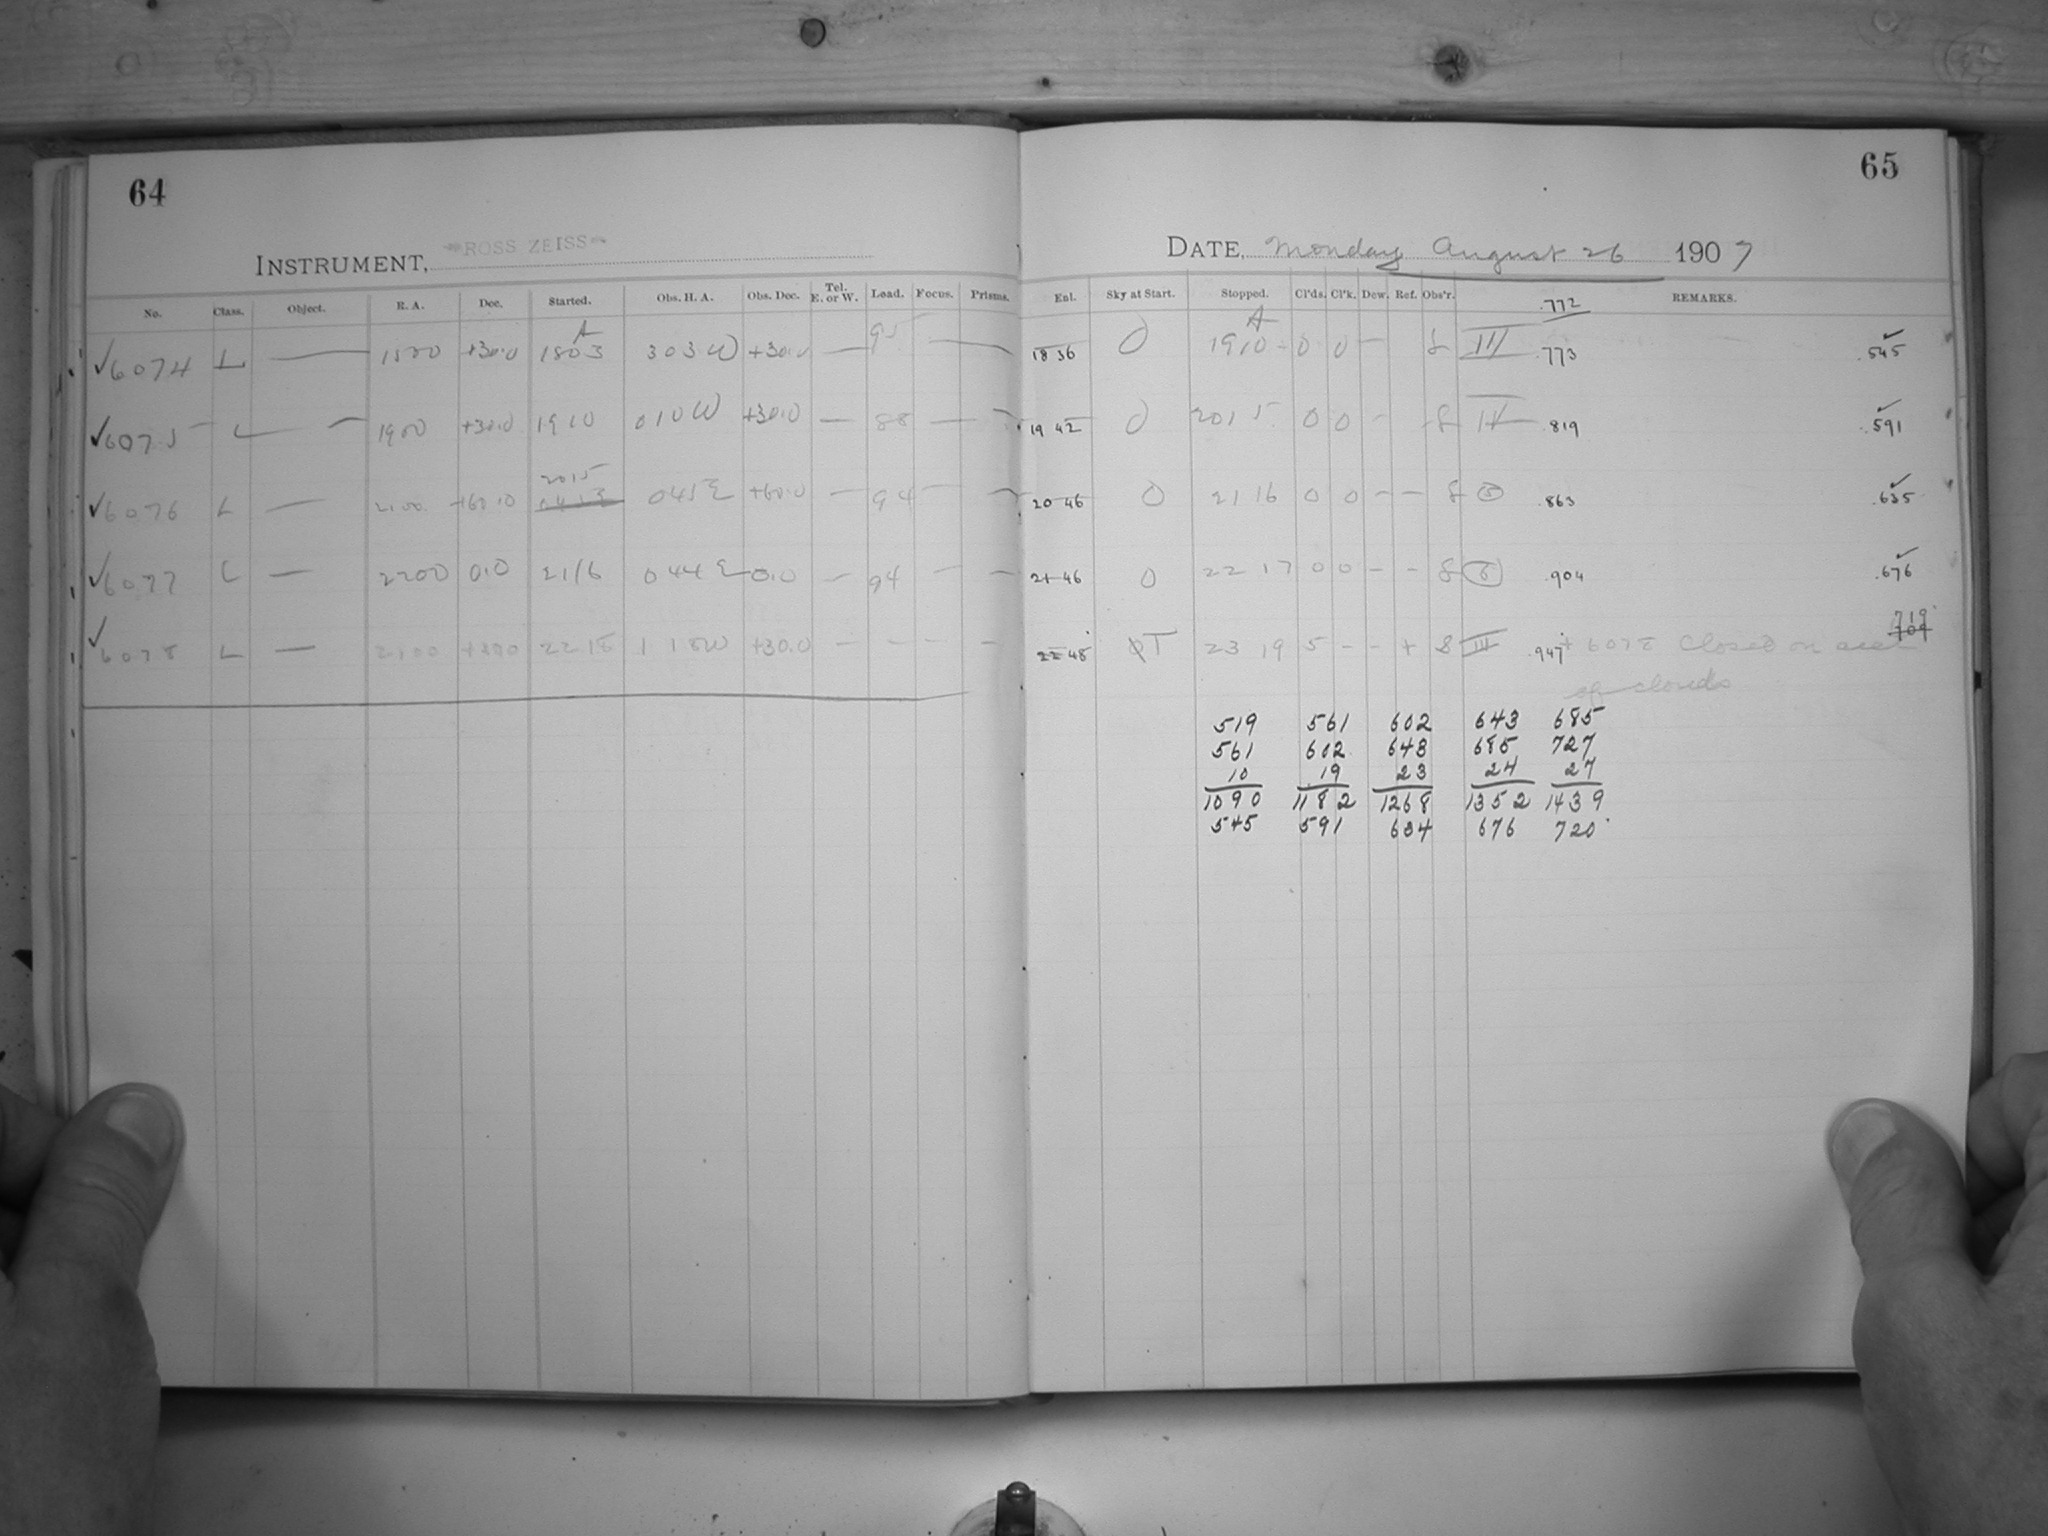 64
INSTRUMENT, ROSS ZEISS
No. Class. Object. R. A. Dec. Started. Obs. H. A. Obs. Dec. Tel. E. or W. Lead. Focus. Prisms.
✓6074 L — 1500 +30.0 1803 A 303W +30.0 — 95 — —
✓6075 L — 1900 +30.0 1910 010W +30.0 — 88 — —
2015
✓6076 L — 2100 +60.0 045E +60.0 — 94 — —
✓6077 L — 2200 0.0 2116 044E 0.0 — 94 — —
✓6078 L — 2100 +30.0 2218 118W +30.0 — — — —
65
DATE, Monday August 26 1907
Enl. Sky at Start. Stopped. Cl'ds. Cl'k. Dew. Ref. Obs'r. REMARKS.
.772
18 36 0 1910 A 0 0 — III .773 .545
19 42 0 2015 0 0 - .819 .591
20 46 0 2116 0 0 - - .863 .635
21 46 0 2217 0 0 - - .904 .676
719
22 48 T 2319 5 - - + III .947 + 6078 Closed on acct 709
of clouds
519 561 602 643 685
561 602 643 685 727
10 19 23 24 27
1090 1182 1268 1352 1439
545 591 634 676 720